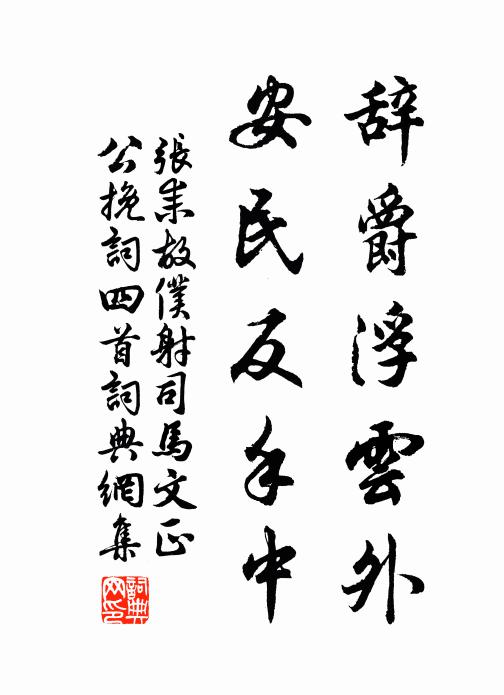 辞爵浮雲外
安民反手中
張耒故僕射司馬文正
公挽詞四首詞典網集